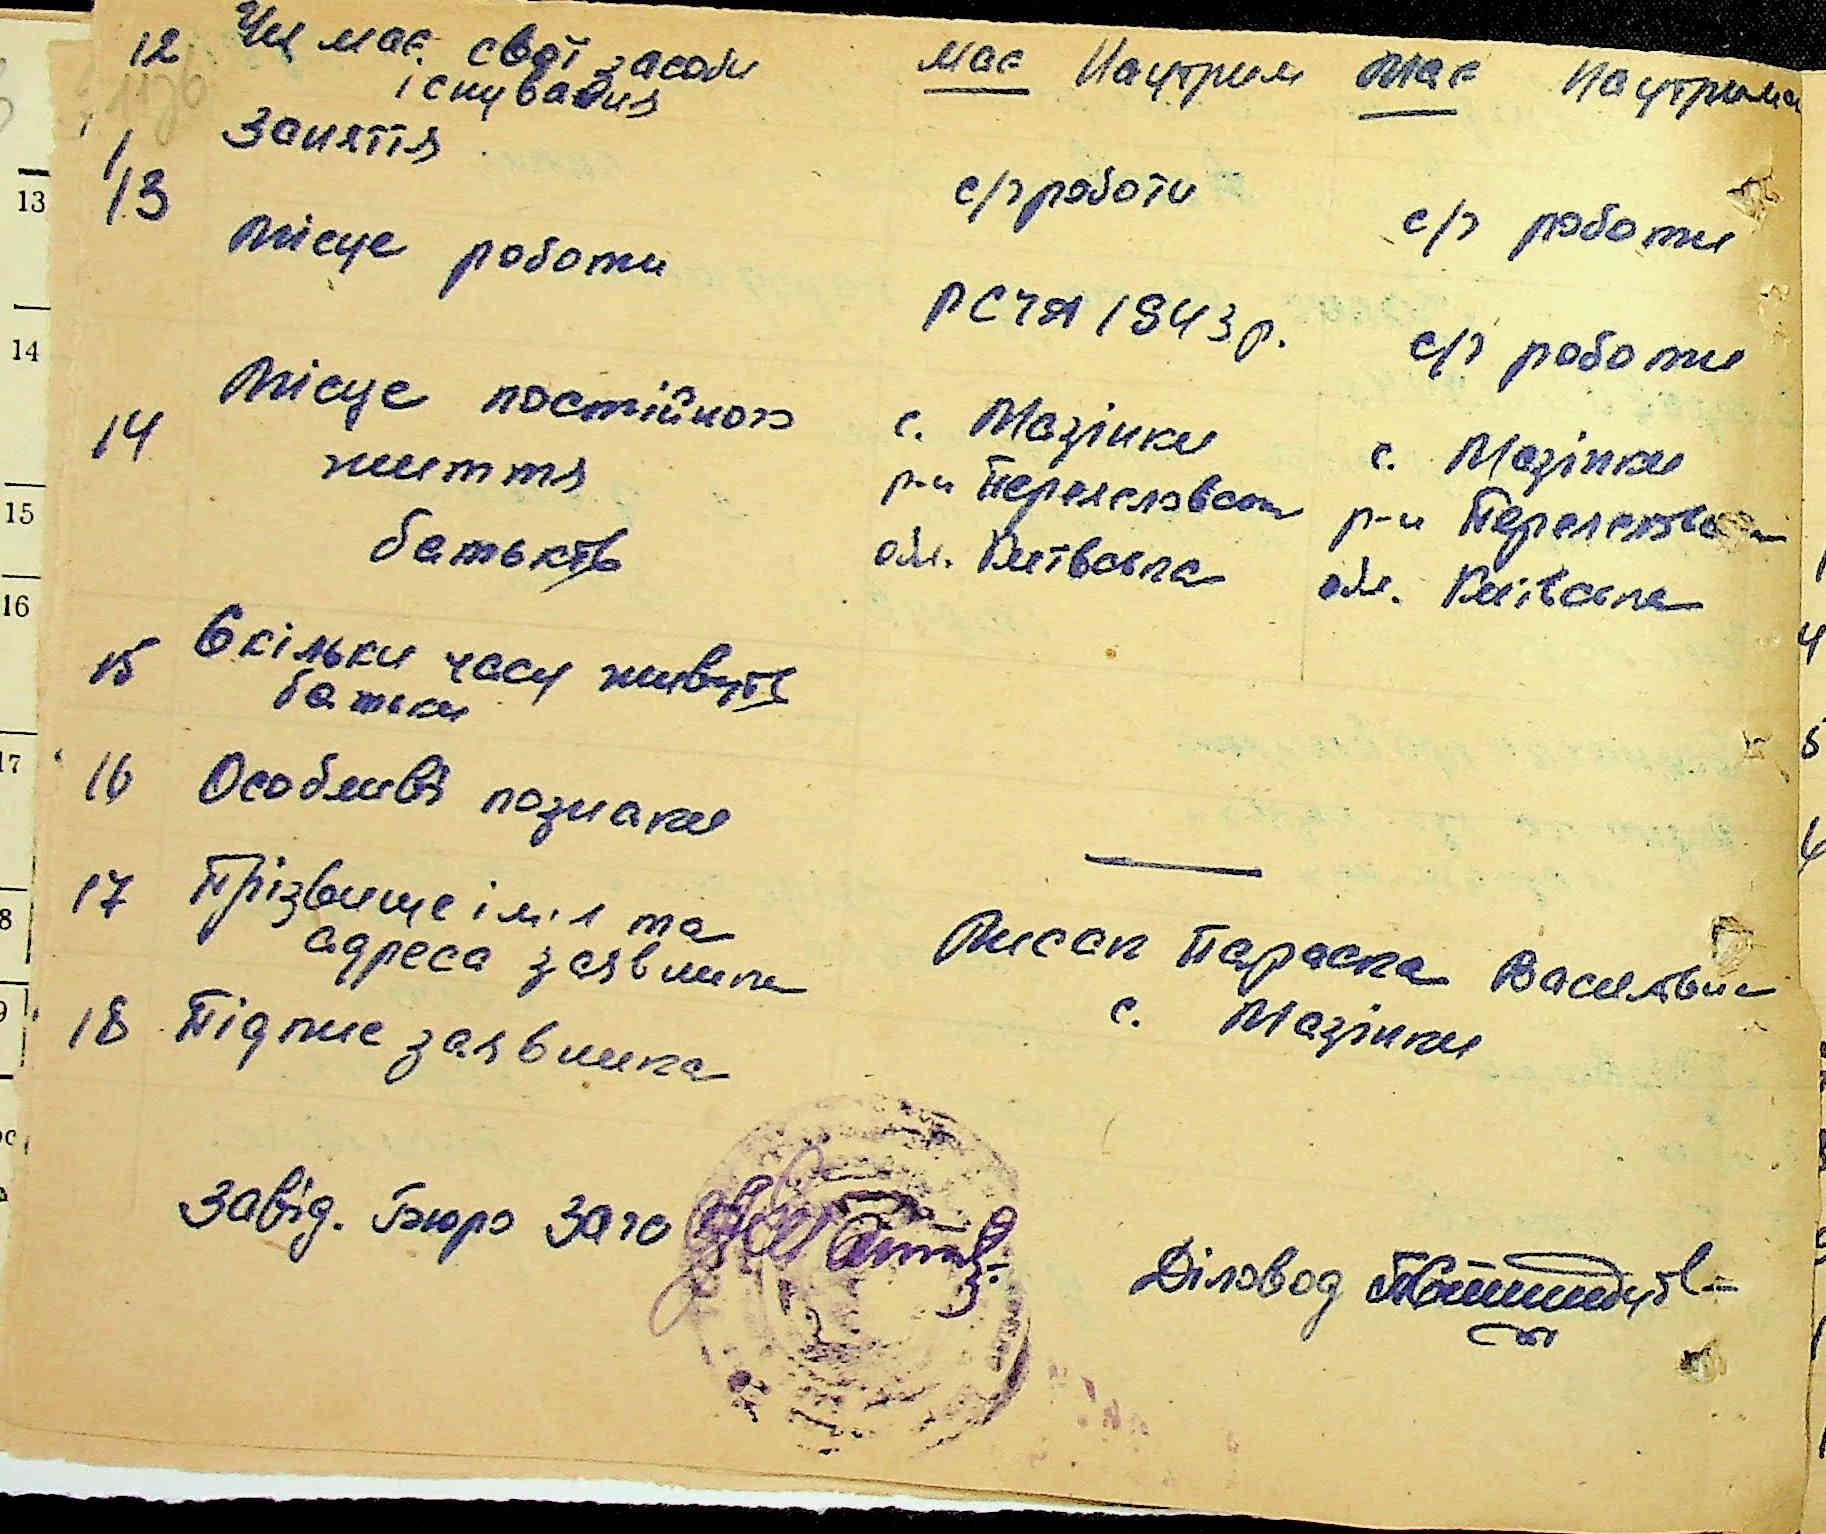 12 Чи має свої засоби має Наутрим має Наутрима
існування
Заняття с/г роботи с/г роботи
13
Місце роботи РСЧА 1943 р. с/г роботи
14 Місце постійного с. Мазінки с. Мазінки
життя р-н Переяславськ р-н Переяславськ
батьків обл. Київська обл. Київська
15 Скільки часу живуть
батьки
16 Особливі познаки —
17 Прізвище ім'я та Лисак Параска Васильвна
адреса заявника с. Мазінки
18 Підпис заявника
Завід. Бюро Загс
Діловод
13
14
15
16
17